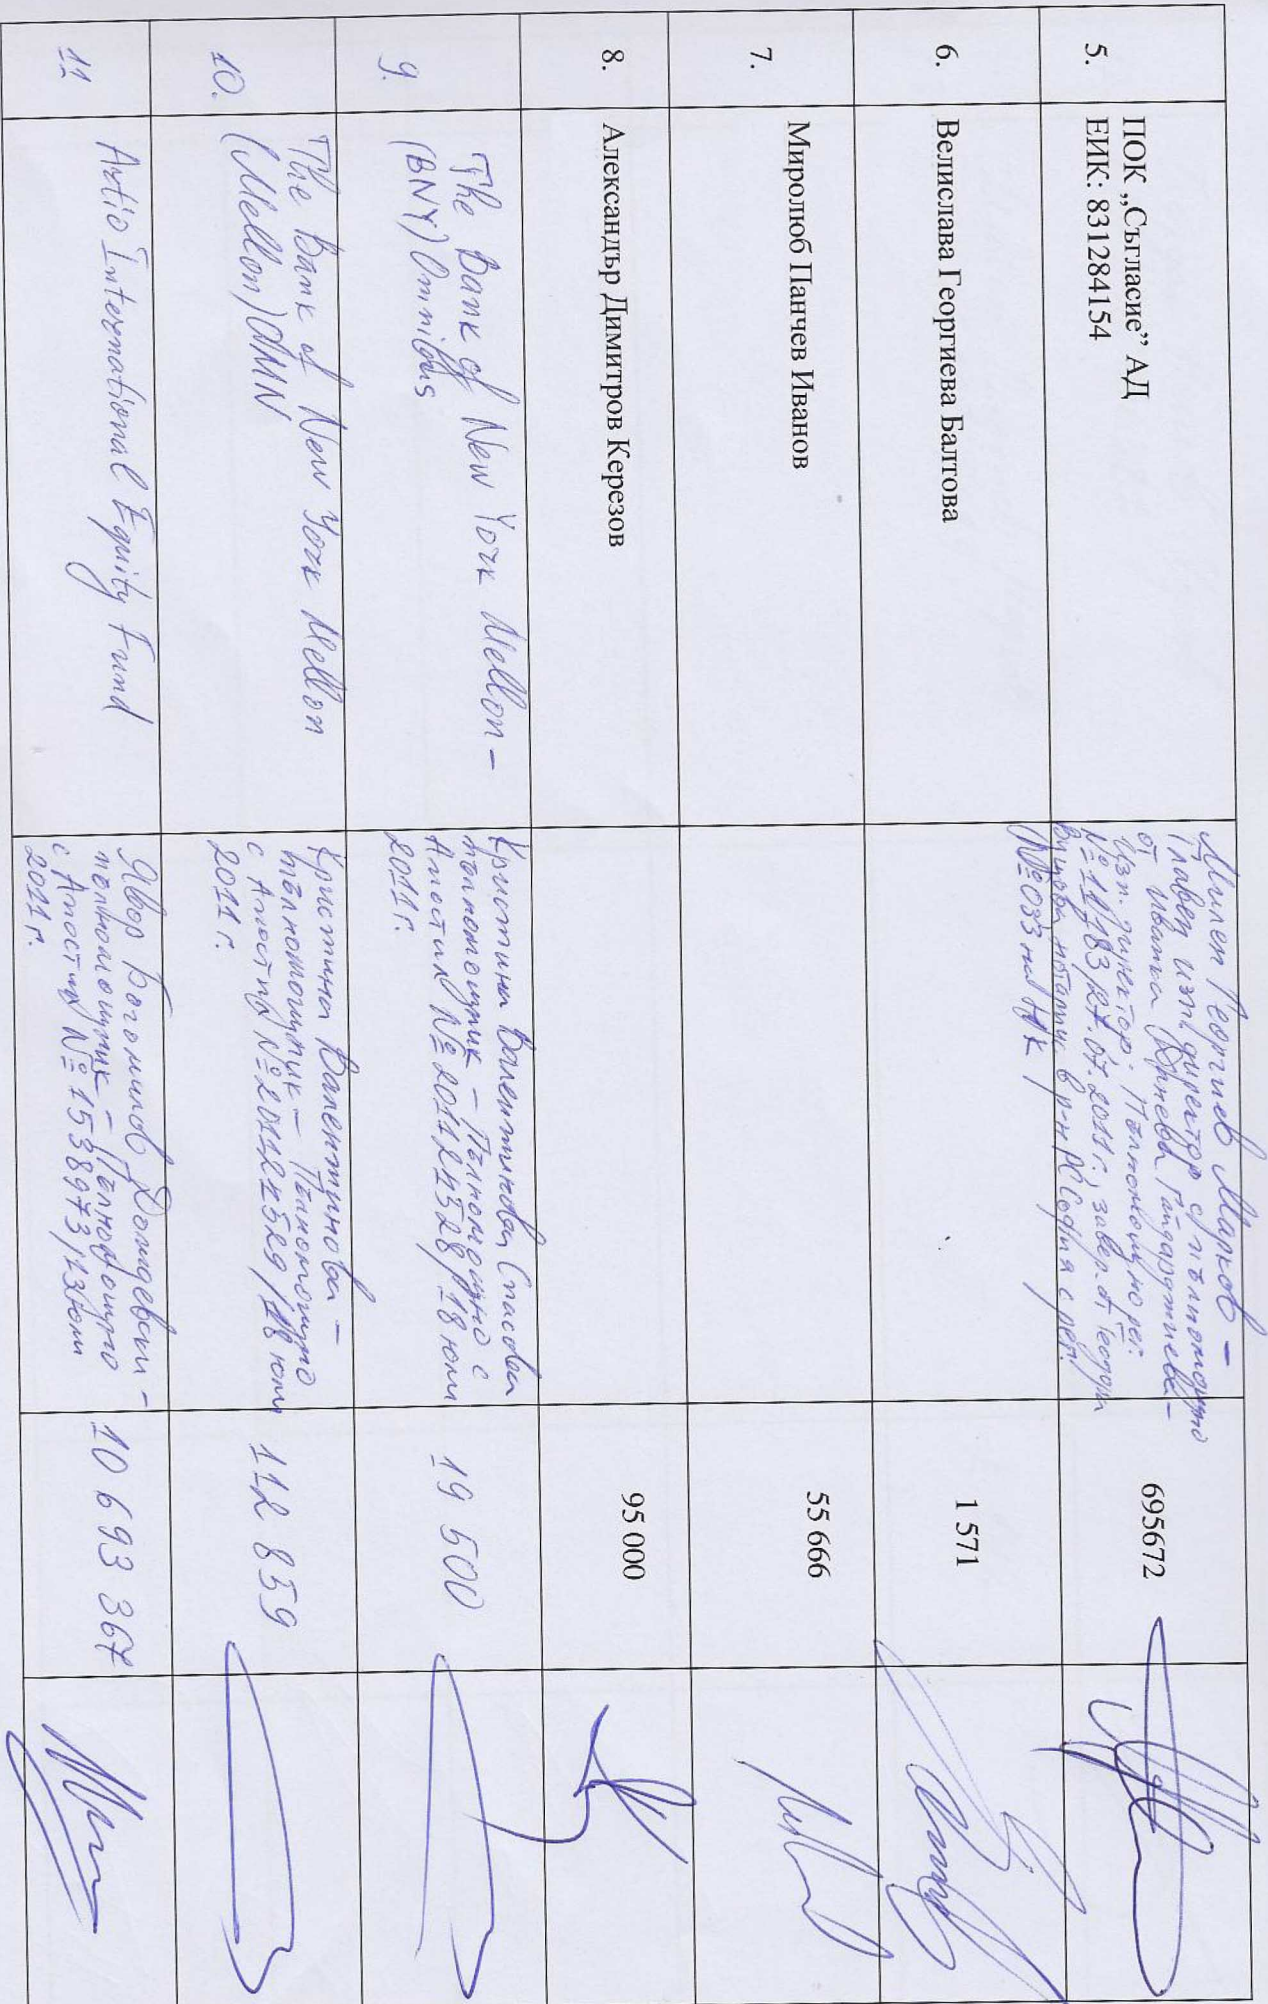 5.
ПОК „Съгласие” АД
ЕИК: 831284154
Милен Георгиев Марков –
Главен изп. директор с пълномощно
от Иванка
Изп. директор. Пълномощно рег.
№ 11183/27.07.2011г., завер. от Теодора
нотариус в р-н РС София с рег.
№ 033 на НК
695672
6.
Велислава Георгиева Балтова
1 571
7.
Миролюб Панчев Иванов
55 666
8.
Александър Димитров Керезов
95 000
9.
The Bank of New York Mellon –
(BNY) Omnibus
Кристина Валентинова Спасова
пълномощник – Пълномощно с
Апостил № 2011 2 /18 юли
2011г.
19 500
10.
The Bank of New York Mellon
(Mellon)
Кристина Валентинова –
пълномощник – Пълномощно
с Апостил № /18 юли
2011г.
112 859
11
Artio International Equity Fund
Явор Богомилов –
пълномощник – Пълномощно
с Апостил № 1538973/13 юли
2011г.
10 693 367